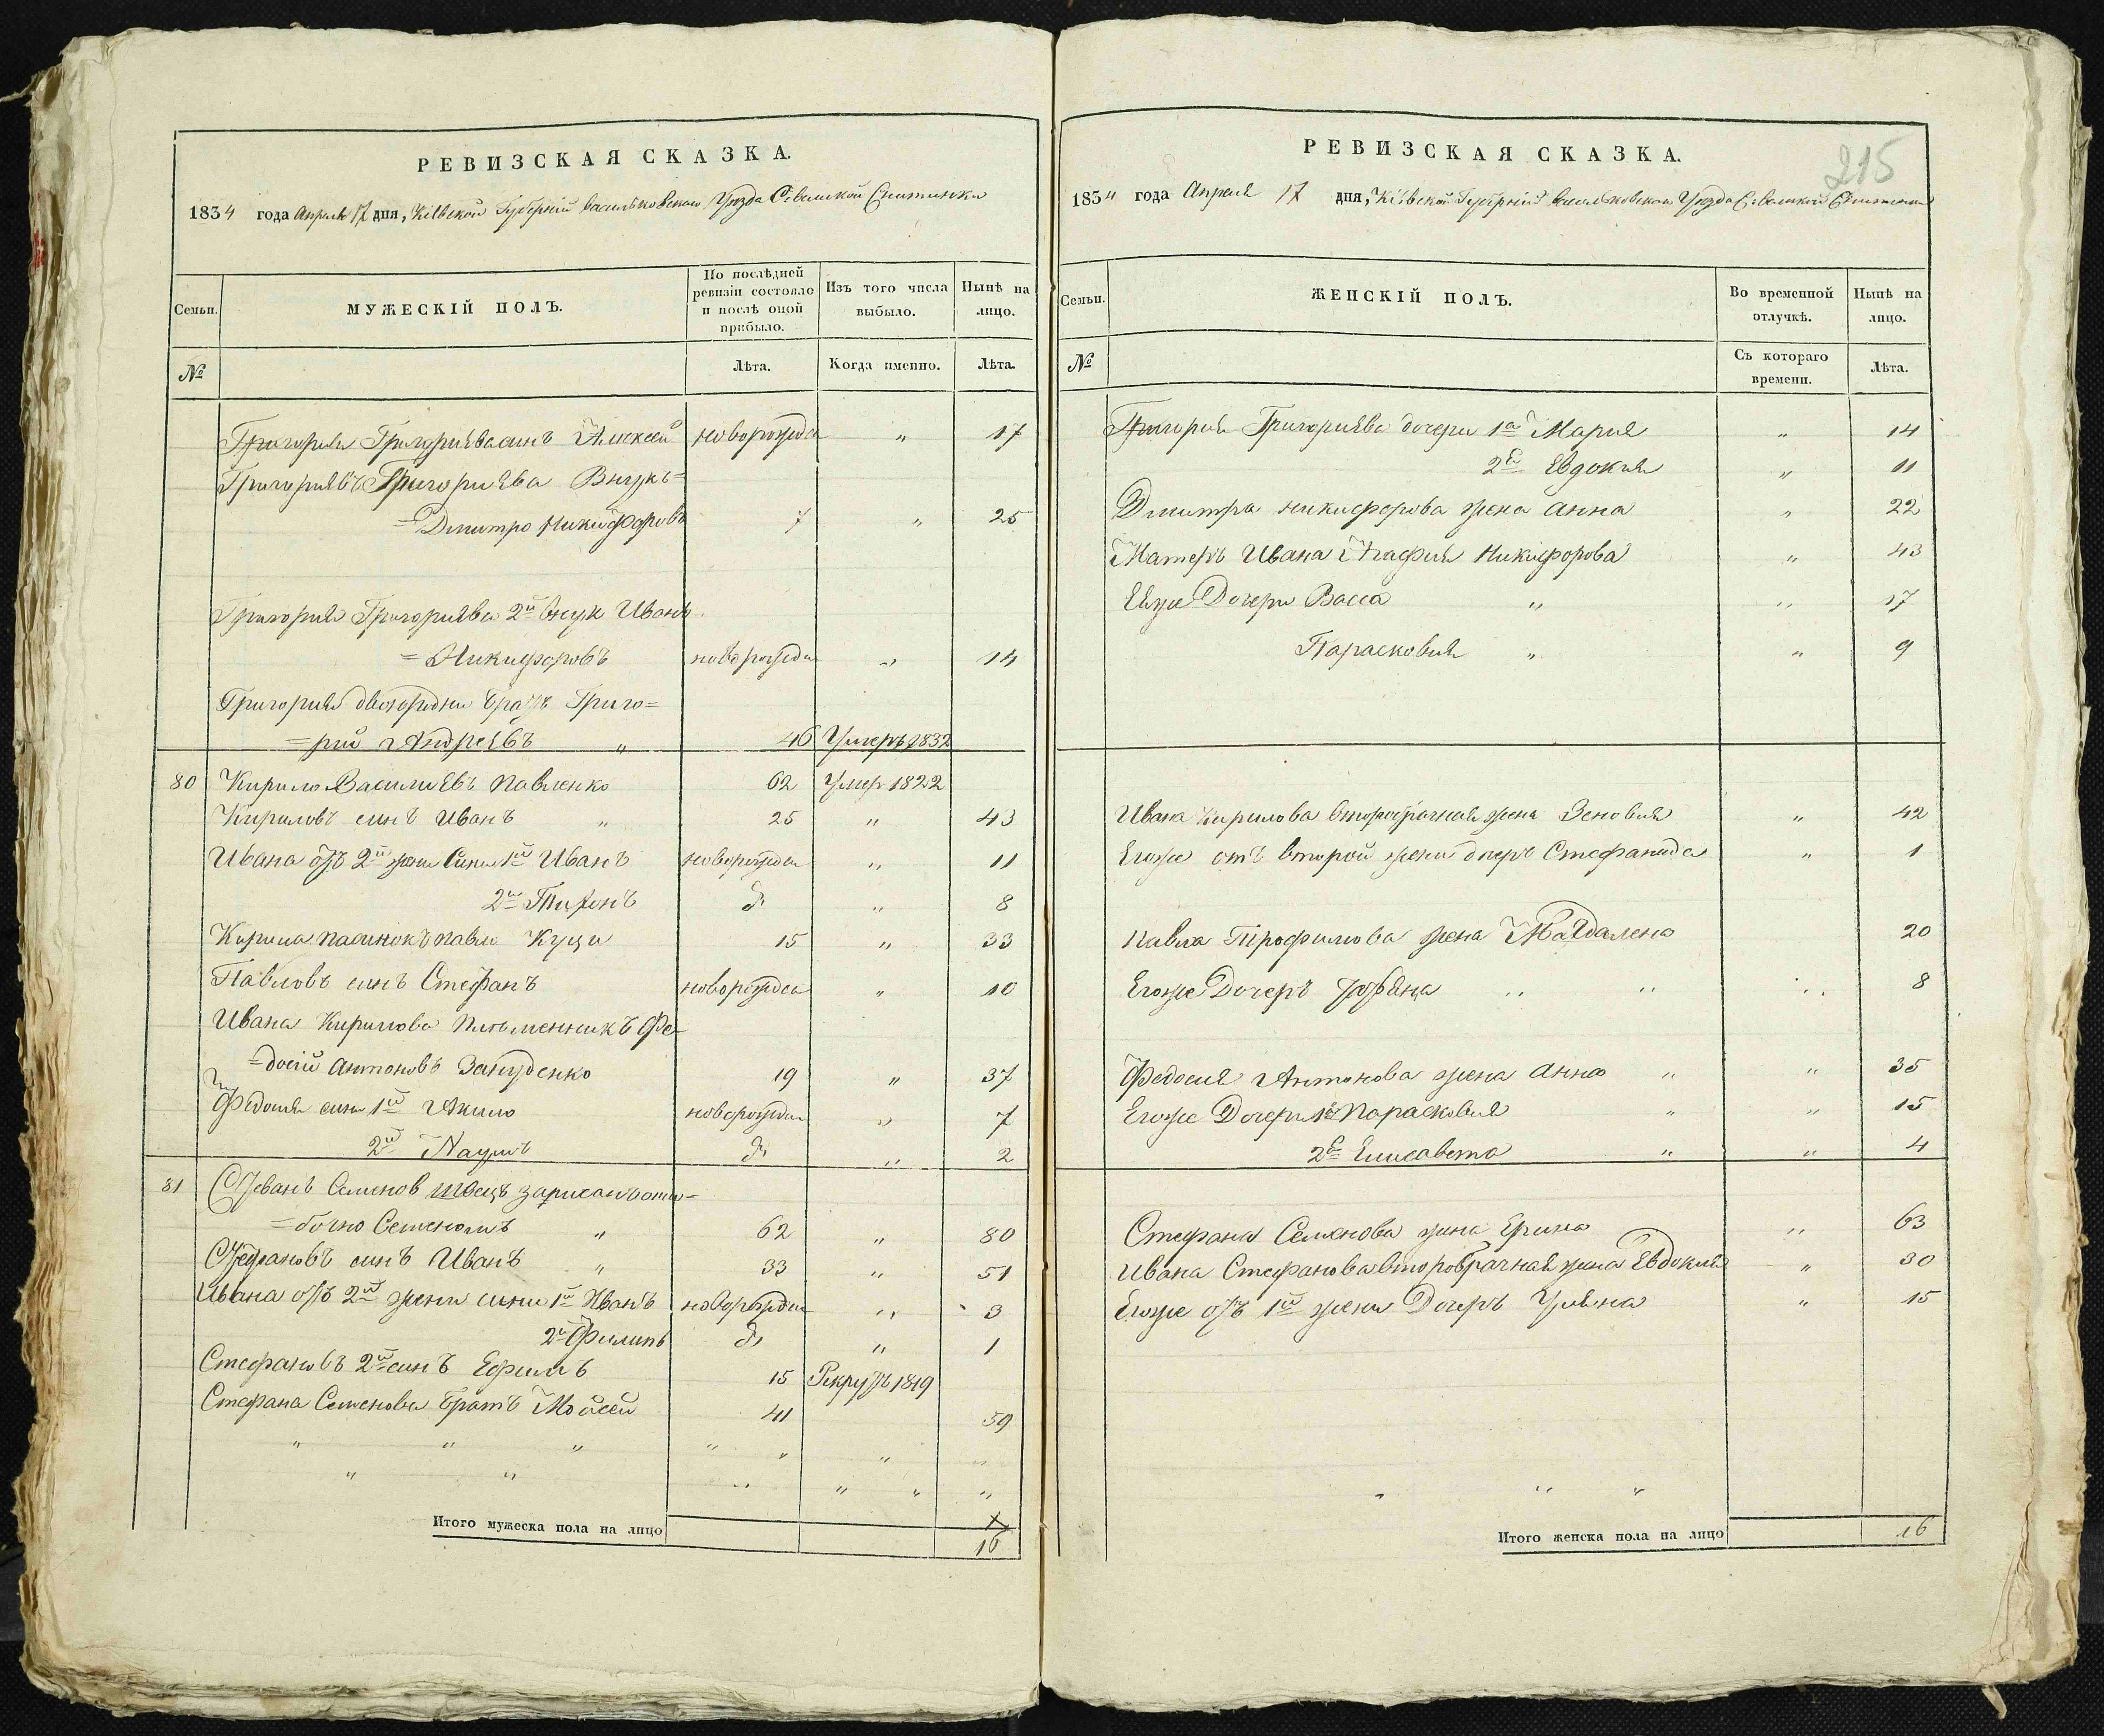 РЕВИЗСКАЯ СКАЗКА.
1834 года Апреля 17 дня, Кіевской Губерніи Васильковскаго Уезда С. Великой Снитинки
Семьи.
МУЖЕСКІЙ ПОЛЪ.
По послѣдней ревизіи состояло и послѣ оной прибыло.
Изъ того числа выбыло.
Нынѣ на лицо.
№
Лѣта.
Когда именно.
Лѣта.
Григория Григориева синъ Алексей новорожден " 17
Григориевъ Григориева Внукъ=
=Дмитро Никифоровъ 7 " 25
Григория Григориева 2й внук Иванъ
=Никифоровъ новорожден " 14
Григория двоюродни братъ Григо=
=рий Андреевъ " 46 Умеръ 1832
80 Кирило Василиевъ Павленко 62 Умер 1822
Кириловъ синъ Иванъ " 25 " 43
Ивана отъ 2й жени Сини 1й Иванъ новорожден " 11
2й Тихонъ д " 8
Кирила пасинокъ Павло Куци 15 " 33
Павловъ синъ Стефанъ новорожден " 10
Ивана Кирилова Питьменникъ Фе
=досій Антоновъ 19 " 37
Федосия сини 1й Акило новорожден " 7
2й Наумъ д " 2
81 Стеванъ Семенов Швецъ записанъ оши=
=бочно Семеномъ " 62 " 80
Стефановъ синъ Иванъ " 33 " 51
Ивана отъ 2й жени сини 1й Иванъ новорожден " 3
2й Филипъ д " 1
Стефановъ 2й синъ Ефимъ 15 Рекрутъ 1819
Стефана Семенова братъ Мойсей 41 59
Итого мужеска пола на лицо 16
215
РЕВИЗСКАЯ СКАЗКА.
1834 года Апреля 17 дня, Кіевской Губерніи Васильковскаго Уезда С. Великой Снитинки
Семьи.
ЖЕНСКІЙ ПОЛЪ.
Во временной отлучкѣ.
Нынѣ на лицо.
№
Съ котораго времени.
Лѣта.
Григория Григориева дочери 1а Мария " 14
2я Евдокия " 11
Дмитра Никифорова жена Анна " 22
Матеръ Ивана Агафия Никифорова " 43
Евже Дочери Васса " " 17
Парасковия " " 9
Ивана Кирилова второбрачная жена Зеновия " 42
Егоже отъ второй жени дочеръ Стефанида " 1
Павла Трофимова жена Магдалена 20
Егоже Дочеръ " " " 8
Федосия Антонова жена Анна " " 35
Егоже Дочери 1я Парасковия " " 15
2я Елисавета " " 4
Стефана Семенова жина Ерина " 63
Ивана Стефанова второбрачная жена Евдокия " 30
Егоже отъ 1й жени Дочеръ Уляна " 15
Итого женска пола на лицо 16